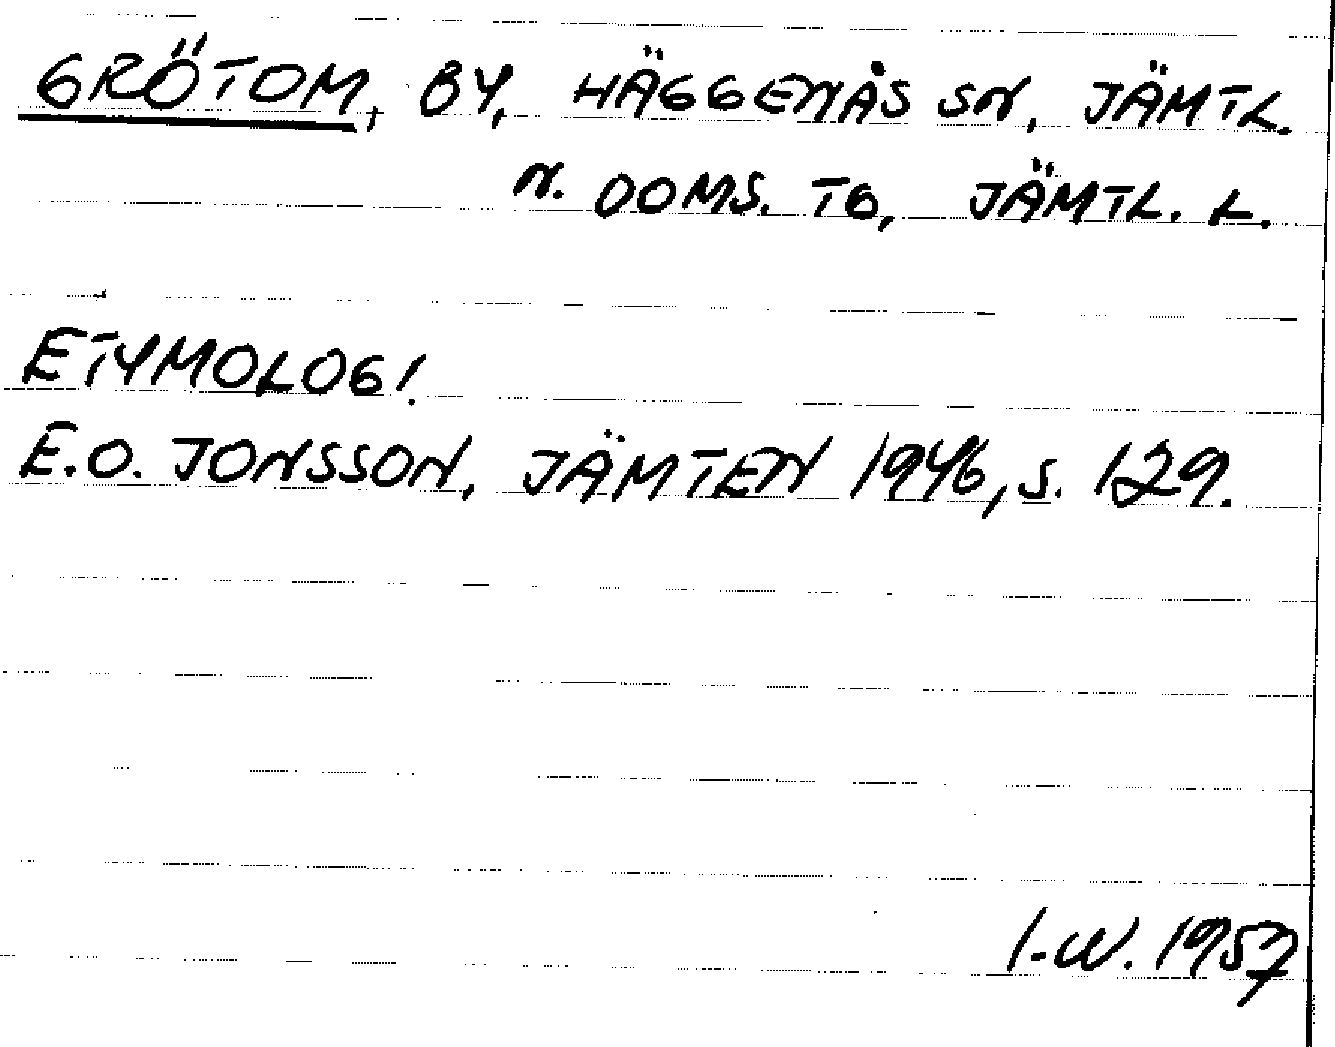 GRÖTOM, BY, HÄGGENÅS SN, JÄMTL.
N. DOMS. TG, JÄMTL. L.
ETYMOLOGI.
E.O. JONSSON, JÄMTEN 1946, S. 129.
I-W. 1957